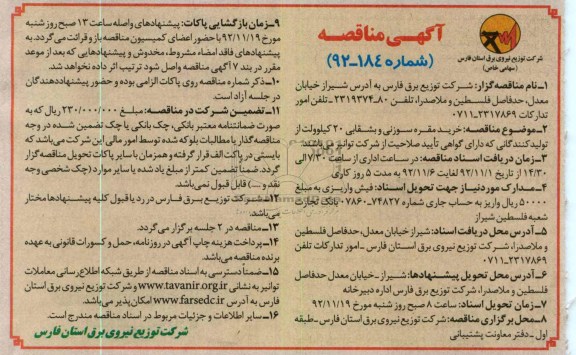 آگهی مناقصه
(شماره ۱۸۴-۹۲)
شرکت توزیع نیروی برق استان فارس
(سهامی خاص)
۱-نام مناقصه‌گزار: شرکت توزیع برق فارس به آدرس شیراز خیابان
معدل، حدفاصل فلسطین و ملاصدرا، تلفن ۸۰-۲۳۱۹۳۷۴ -تلفن امور
تدارکات ۲۳۱۷۸۶۹-۰۷۱۱
۲-موضوع مناقصه: خرید مقره سوزنی و بشقابی ۲۰ کیلوولت از
تولیدکنندگانی که دارای گواهی تأیید صلاحیت از شرکت توانیر می‌باشند.
۳-زمان دریافت اسناد مناقصه: در ساعت اداری از ساعت ۷/۳۰ الی
۱۴/۳۰ از تاریخ ۹۲/۱۱/۱ لغایت ۹۲/۱۱/۶ به مدت ۵ روز کاری
۴-مدارک موردنیاز جهت تحویل اسناد: فیش واریزی به مبلغ
۵۰۰۰۰ ریال واریز به حساب جاری شماره ۷۴۸۲۷-۰۷۸۶۰ بانک تجارت
شعبه فلسطین شیراز
۵-آدرس محل دریافت اسناد: شیراز خیابان معدل، حدفاصل فلسطین
و ملاصدرا، شرکت توزیع نیروی برق استان فارس -امور تدارکات تلفن
۲۳۱۷۸۶۹-۰۷۱۱
۶-آدرس محل تحویل پیشنهادها: شیراز -خیابان معدل حدفاصل
فلسطین و ملاصدرا، شرکت توزیع نیروی برق استان فارس اداره دبیرخانه
۷-زمان تحویل اسناد: ساعت ۸ صبح روز شنبه مورخ ۹۲/۱۱/۱۹
۸-محل برگزاری مناقصه: شرکت توزیع نیروی برق استان فارس -طبقه
اول -دفتر معاونت پشتیبانی
۹-زمان بازگشایی پاکات: پیشنهادهای واصله ساعت ۱۳ صبح روز شنبه
مورخ ۹۲/۱۱/۱۹ با حضور اعضای کمیسیون مناقصه باز و قرائت می‌گردد. به
پیشنهادهای فاقد امضاء مشروط، مخدوش و پیشنهادهایی که بعد از موعد
مقرر در بند ۷ آگهی مناقصه واصل شود ترتیب اثر داده نخواهد شد.
۱۰-ذکر شماره مناقصه روی پاکات الزامی بوده و حضور پیشنهاددهندگان
در جلسه آزاد است.
۱۱-تضمین شرکت در مناقصه: مبلغ ۲۳۰/۰۰۰/۰۰۰ ریال که به
صورت ضمانتنامه معتبر بانکی، چک بانکی یا چک تضمین شده در وجه
مناقصه‌گذار یا مطالبات بلوکه شده توسط امور مالی این شرکت می‌باشد که
بایستی در پاکت الف قرار گرفته و همزمان با سایر پاکات تحویل مناقصه‌گزار
گردد. ضمناً تضمین کمتر از مبلغ یاد شده یا سایر موارد (چک شخصی وجه
نقد و ...) قابل قبول نمی‌باشد.
۱۲-شرکت توزیع برق فارس در رد یا قبول کلیه پیشنهادها مختار
می‌باشد.
۱۳-مناقصه در ۲ جلسه برگزار می‌گردد.
۱۴-پرداخت هزینه چاپ آگهی در روزنامه، حمل و کسورات قانونی به عهده
برنده مناقصه می‌باشد.
۱۵-ضمناً دسترسی به اسناد مناقصه از طریق شبکه اطلاع‌رسانی معاملات
توانیر به نشانی www.tavanir.org.ir و شرکت توزیع نیروی برق استان
فارس به آدرس www.farsedc.ir امکان‌پذیر می‌باشد.
۱۶-سایر اطلاعات و جزئیات مربوط در اسناد مناقصه مندرج است.
شرکت توزیع نیروی برق استان فارس